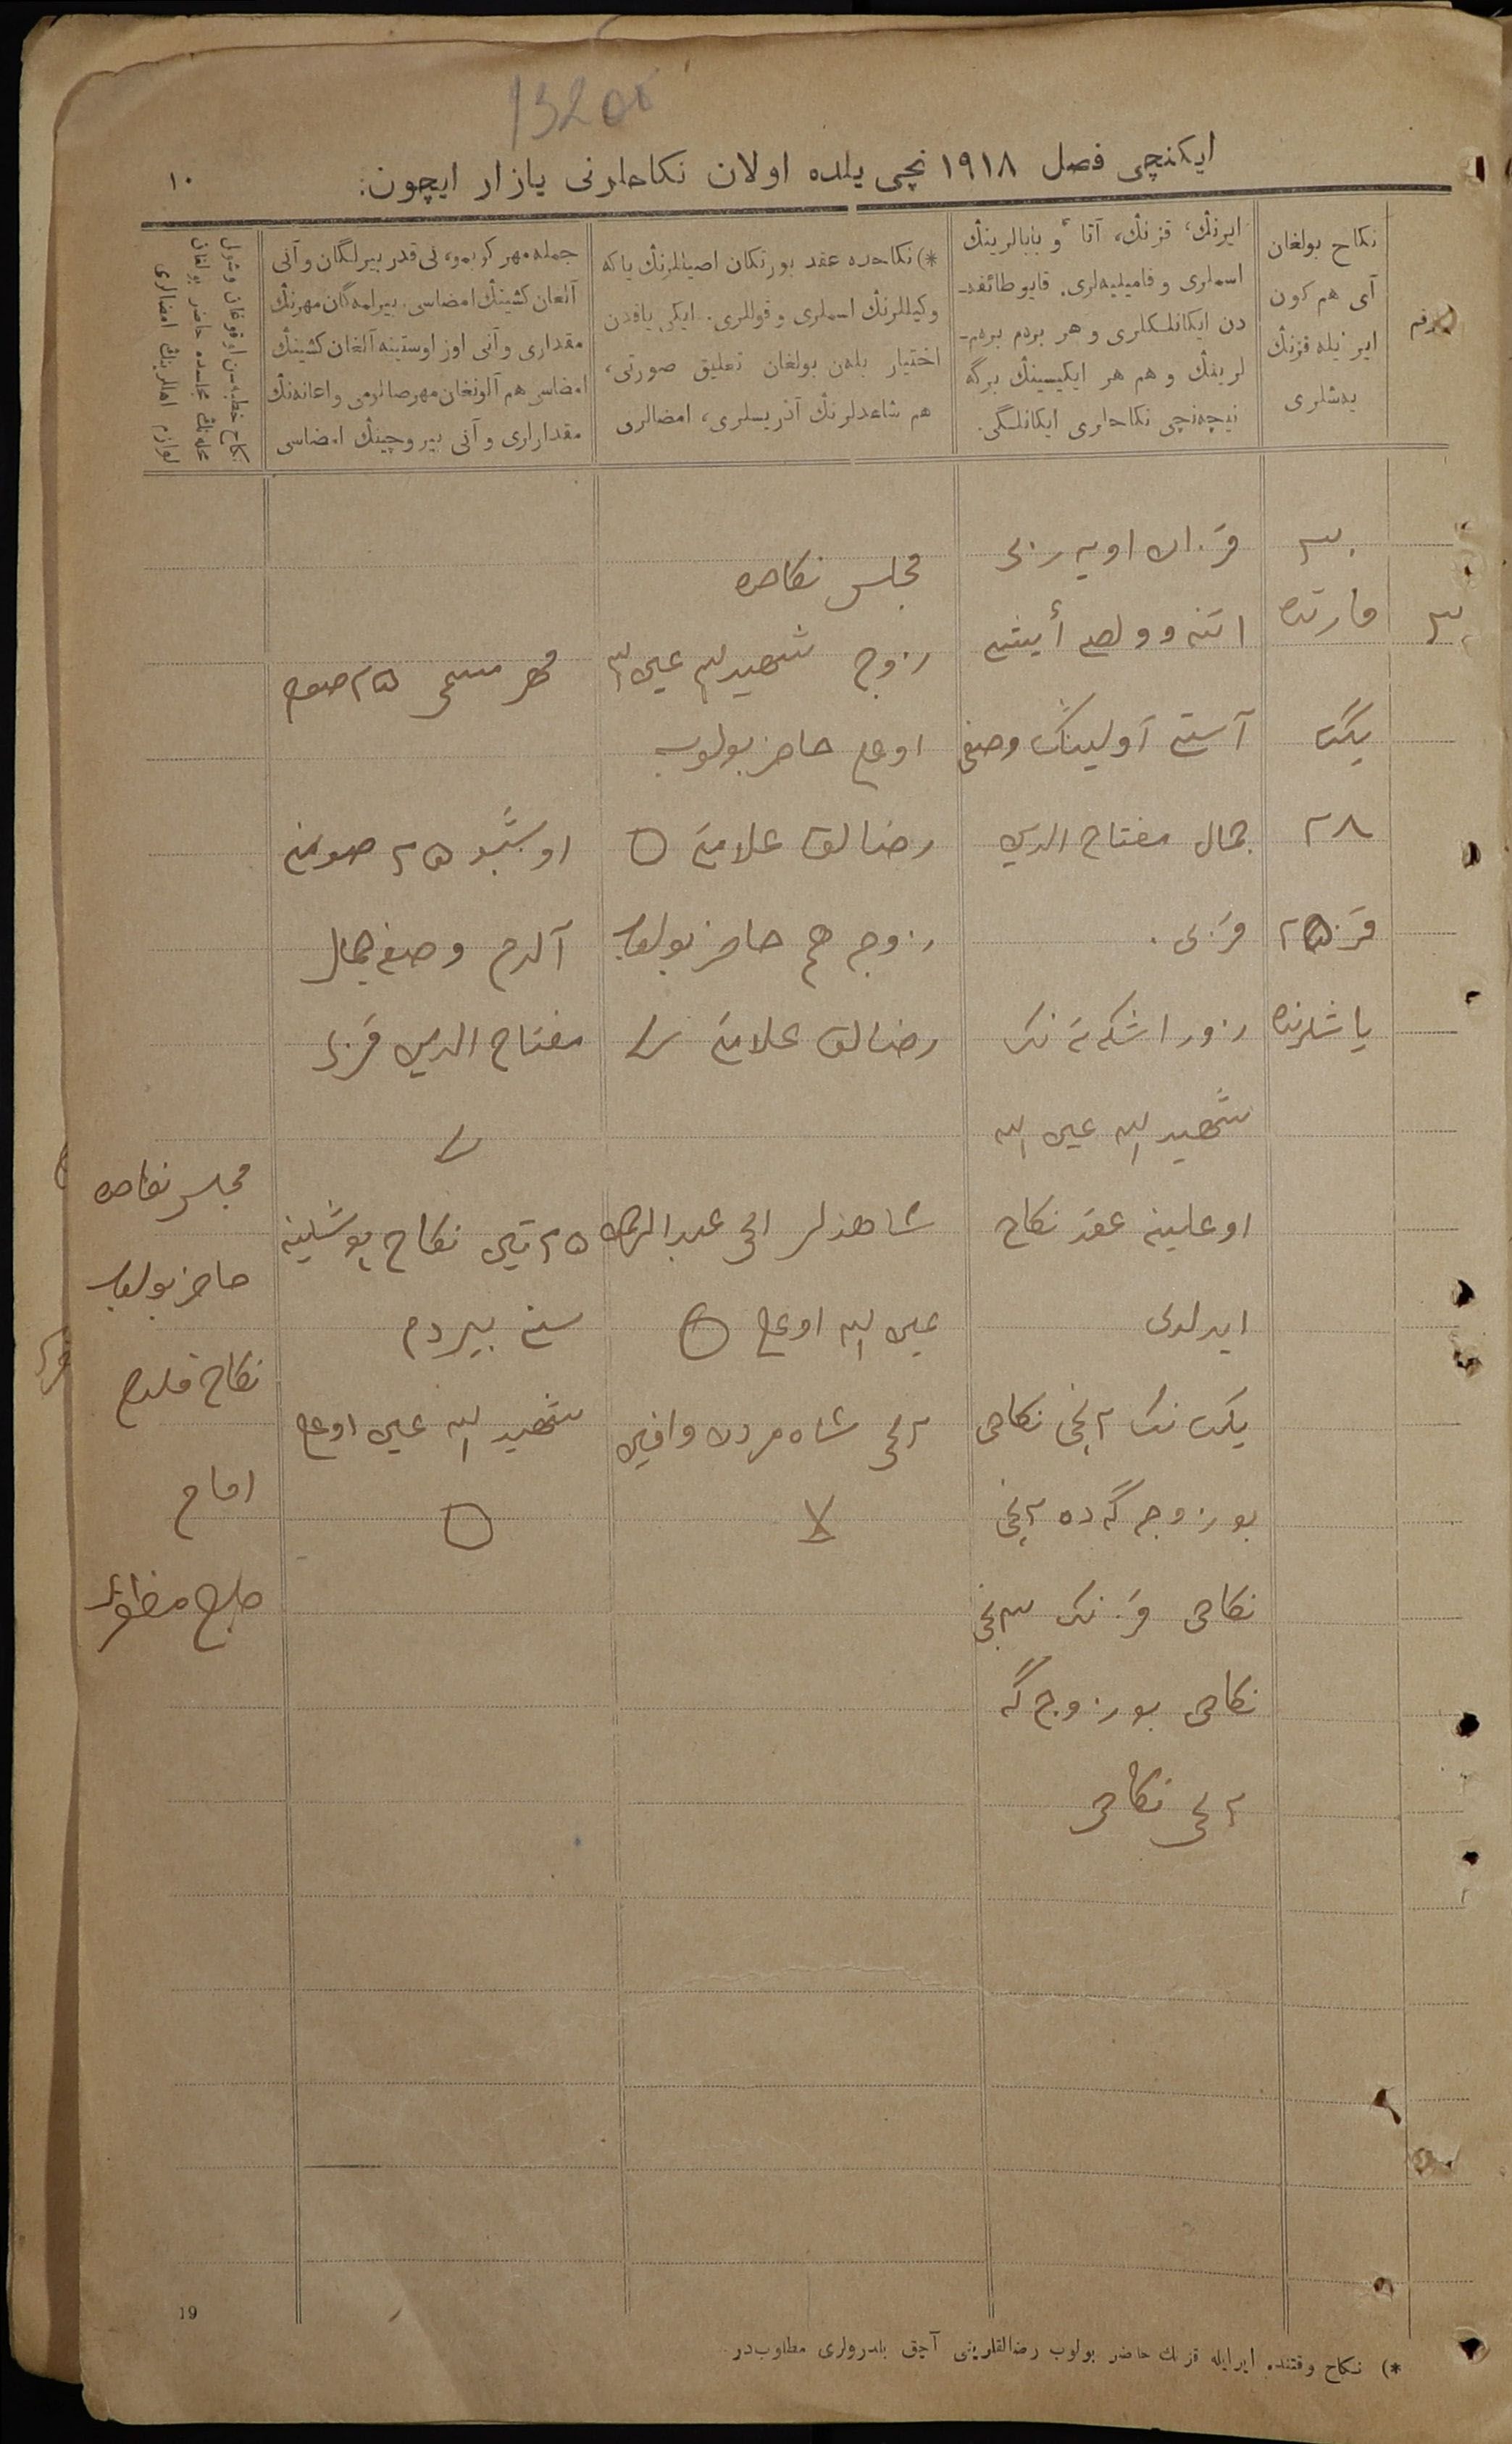 132
ایکنچی فصل ۱۹۱۸ نچی یلده اولان نکاحلرنی یازار ایچون:
۱۰
رقم
نکاح بولغان
آی هم کون
ایر ئیله قزنڭ
یەشلری
ایرنڭ، قزنڭ، آتا و بابالرینڭ
اسملری و فامیلیەلری. قایو طائفه‌-
دن ایکانلکلری و هر بردم بردم-
لرینڭ و هم هر ایکیسینڭ برگه
نیچەنچی نکاحلری ایکانلگی.
*) نکاحده عقد یورتکان اصیللرنڭ یاکه
وکیللرنڭ اسملری و قوللری. ایکی یاقدن
اختیار بلەن بولغان تعلیق صورتی،
هم شاهدلرنڭ آدریسلری، امضالری
جمله مهر کربمو، نی قدر بیرلگان و آنی
آلغان کشینڭ امضاسی. بیرلمەگان مهرنڭ
مقداری و آنی اوز اوستینه آلغان کشینڭ
امضاسی هم آلونغان مهر صانلرمی و اعانه‌نڭ
مقدارلری و آنی بیروچینڭ امضاسی
نکاح خطبه‌سن اوقوغان وشول
محله‌نڭ مجلسده حاضر بولغان
لوازم اهللرینڭ امضالری
۳
۳۰
مارتده
یگت
۲۸
قز ۲۵
یاشلرنده
قزان اویەزی
آستی آولینڭ وصفی
جمال مفتاح الدین
قزی.
شهید الله عین الله
اوغلینه عقد نکاح
ایدلدی
یگت نڭ ۲نچی نکاحی
بو زوجه گه ده ۲نچی
نکاحی قز نڭ ۳نچی
نکاحی بو زوج گه
۲نچی نکاحی
مجلس نکاحده
زوج شهید الله عین الله
اوغلی حاضر بولوب
رضالق علامتی
زوجه هم حاضر بولوب
رضالق علامتی
شاهدلر ۱نچی عبدالرحمن
عین الله اوغلی
۲نچی شاه مردان
مهر مسمی ۲۵ صوم
اوشبو ۲۵ صومنی
آلدم وصفی جمال
مفتاح الدین قزی
۲۵ تین نکاح پوشلینه
سنی بیردم
شهید الله عین اوغلی
مجلس نکاحده
حاضر بولوب
نکاح قلدم
امام
19
*) نکاح وقتنده ایر ایله قزنڭ حاضر بولوب رضالقلرینی آچق بلدرولری مطلوب‌در